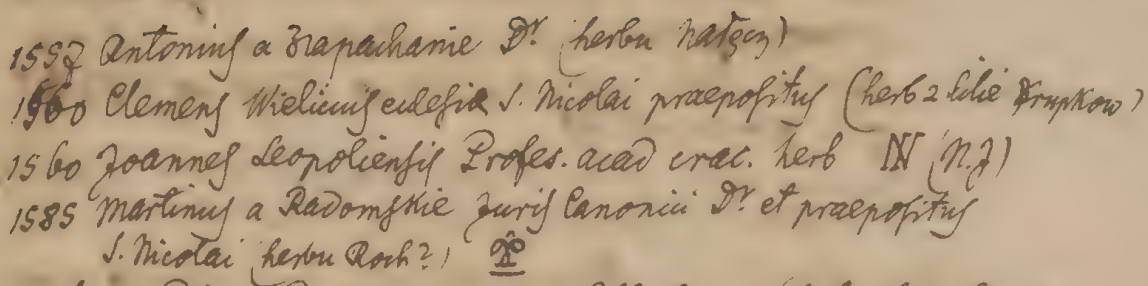 1557 Antonius a Zrapachanie Dr (herbu Nałęcz)
1560 Clemens Wielicius eclesiæ S. Nicolai praepositus (herb 2 lilie Krupkow)
1560 Joannes Leopoliensis Profes. acad crac. herb IN (N.J)
1585 Martinus a Radomskie Juris Canonici Dr et praepositus
S. Nicolai (herbu Roch?)